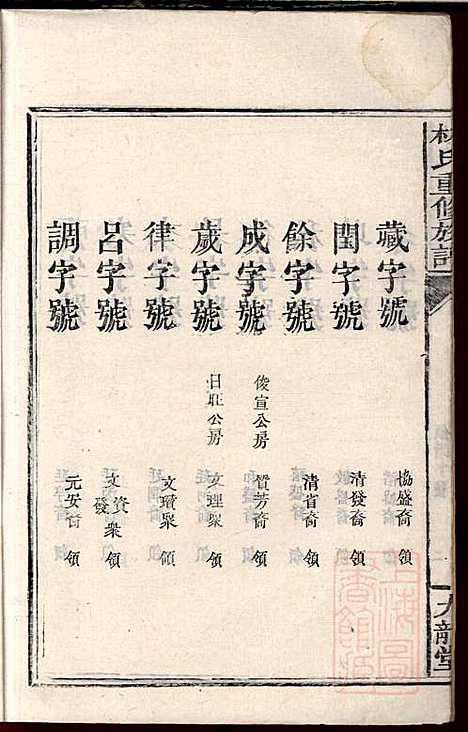 林氏重修族譜
九龍堂
藏字號 協盛裔 領
閏字號 清發裔 領
餘字號 清省裔 領
成字號 俊宣公房 贊芳裔 領
歲字號 日旺公房 文理衆 領
律字號 文瓚衆 領
呂字號 文資發衆 領
調字號 元安裔 領